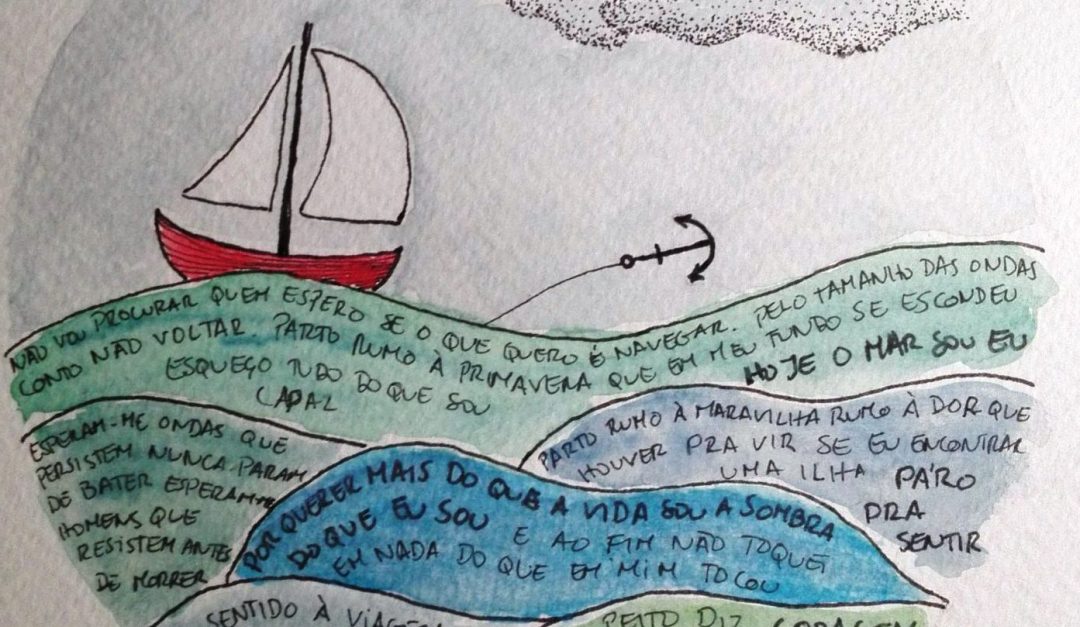 NÃO VOU PROCURAR QUEM ESPERO SE O QUE QUERO É NAVEGAR. PELO TAMANHO DAS ONDAS
CONTO NÃO VOLTAR PARTO RUMO À PRIMAVERA QUE EM MEU FUNDO SE ESCONDEU
ESQUEÇO TUDO DO QUE SOU CAPAZ
HOJE O MAR SOU EU
ESPERAM-ME ONDAS QUE
PERSISTEM NUNCA PARAM
DE BATER ESPERAM-ME
HOMENS QUE
RESISTEM ANTES
DE MORRER
POR QUERER MAIS DO QUE A VIDA SOU A SOMBRA
DO QUE EU SOU E AO FIM NÃO TOQUEI
EM NADA DO QUE EM MIM TOCOU
PARTO RUMO À MARAVILHA RUMO À DOR QUE
HOUVER PRA VIR SE EU ENCONTRAR
UMA ILHA PÁRO
PRA
SENTIR
SENTIDO À VIAGEM
PEITO DIZ CORAGEM